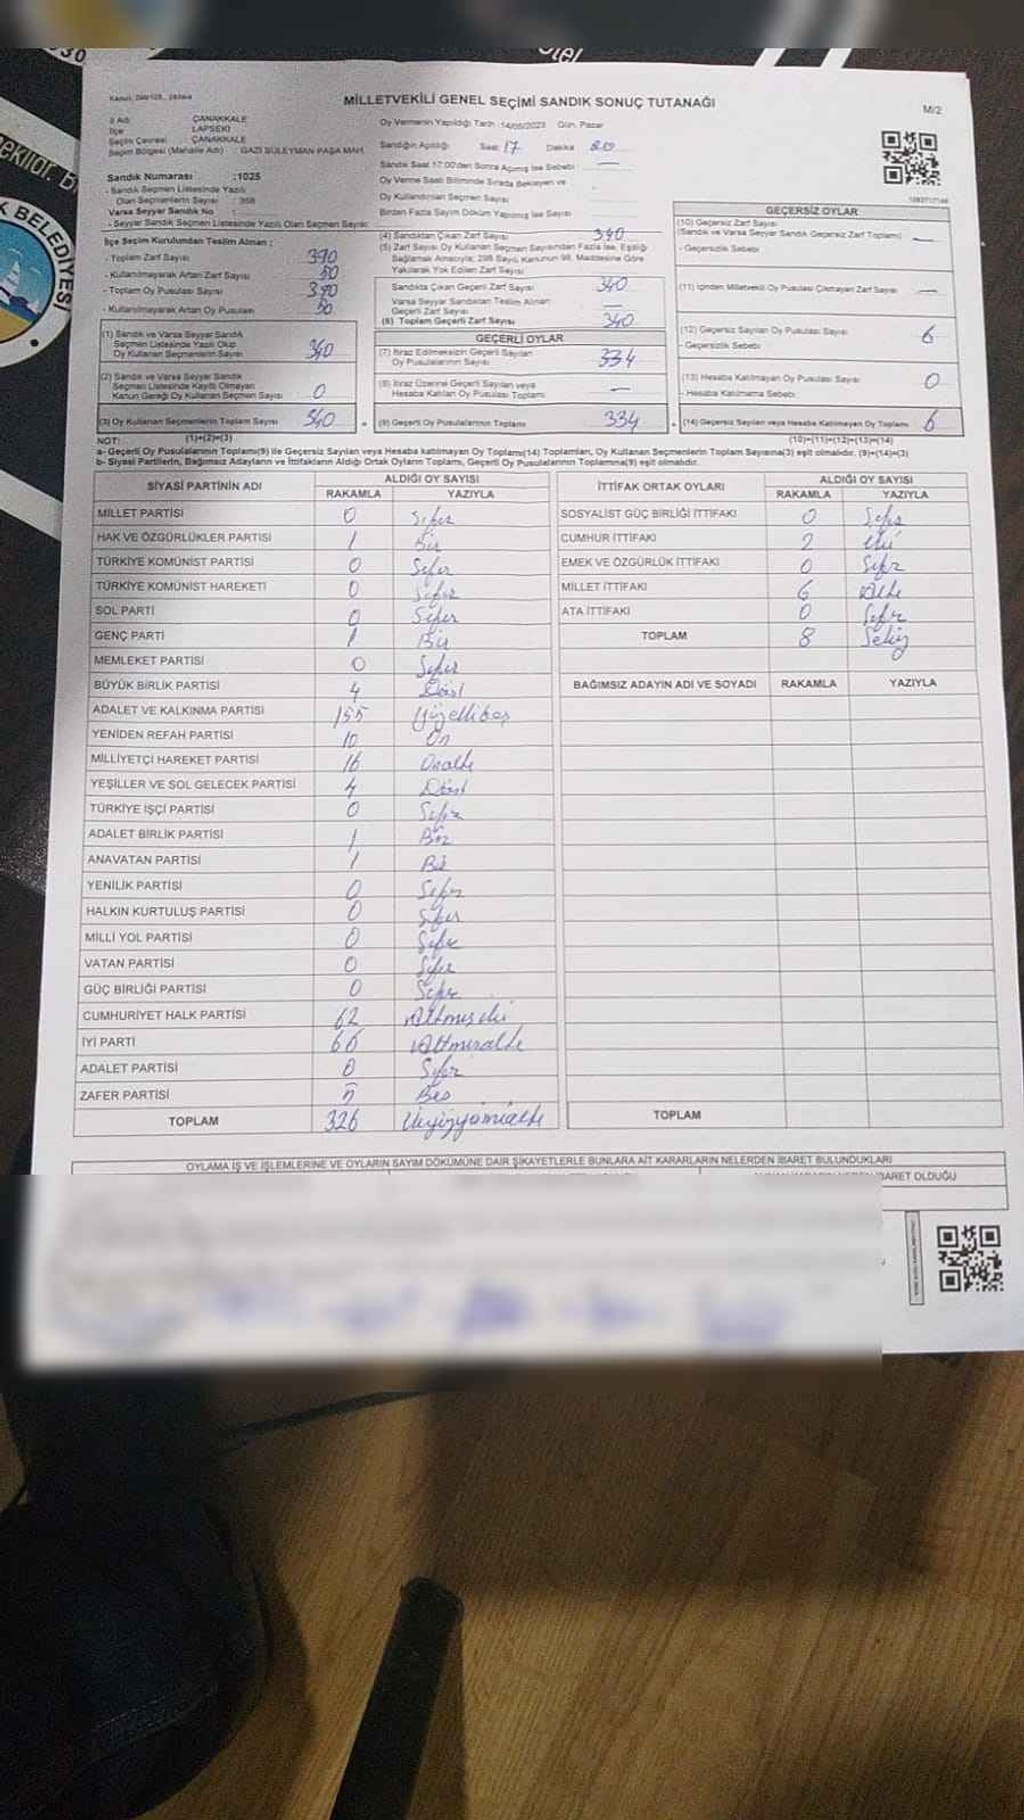 otel
30
ekildi. B
K BELEDİYESİ
MİLLETVEKİLİ GENEL SEÇİMİ SANDIK SONUÇ TUTANAĞI
M/2
İl Adı : ÇANAKKALE
İlçe : LAPSEKİ
Seçim Çevresi : ÇANAKKALE
Seçim Bölgesi (Mahalle Adı) : GAZİ SÜLEYMAN PAŞA MAH.
Oy Vermenin Yapıldığı Tarih : 14/05/2023 Gün: Pazar
Sandığın Açıldığı Saat: 17 Dakika 20
Sandık Saat 17:00'den Sonra Açılmış İse Sebebi : —
Oy Verme Saati Bitiminde Sırada Bekleyen ve
Oy Kullandırılan Seçmen Sayısı
Birden Fazla Sayım Döküm Yapılmış İse Sayısı
Sandık Numarası :1025
- Sandık Seçmen Listesinde Yazılı
Olan Seçmenlerin Sayısı : 358
Varsa Seyyar Sandık No :
- Seyyar Sandık Seçmen Listesinde Yazılı Olan Seçmen Sayısı:
İlçe Seçim Kurulundan Teslim Alınan ;
- Toplam Zarf Sayısı 390
- Kullanılmayarak Artan Zarf Sayısı 50
- Toplam Oy Pusulası Sayısı 390
- Kullanılmayarak Artan Oy Pusulası 50
(1) Sandık ve Varsa Seyyar Sandık
Seçmen Listesinde Yazılı Olup
Oy Kullanan Seçmenlerin Sayısı 340
(2) Sandık ve Varsa Seyyar Sandık
Seçmen Listesinde Kayıtlı Olmayan
Kanun Gereği Oy Kullanan Seçmen Sayısı 0
(3) Oy Kullanan Seçmenlerin Toplam Sayısı 340
(1)+(2)=(3)
(4) Sandıktan Çıkan Zarf Sayısı 340
(5) Zarf Sayısı Oy Kullanan Seçmen Sayısından Fazla İse, Eşitliği
Sağlamak Amacıyla; 298 Sayılı Kanunun 98. Maddesine Göre
Yakılarak Yok Edilen Zarf Sayısı
Sandıkta Çıkan Geçerli Zarf Sayısı 340
Varsa Seyyar Sandıktan Teslim Alınan
Geçerli Zarf Sayısı —
(6) Toplam Geçerli Zarf Sayısı 340
GEÇERLİ OYLAR
(7) İtiraz Edilmeksizin Geçerli Sayılan
Oy Pusulalarının Sayısı 334
(8) İtiraz Üzerine Geçerli Sayılan veya
Hesaba Katılan Oy Pusulası Toplamı —
(9) Geçerli Oy Pusulalarının Toplamı 334
GEÇERSİZ OYLAR
(10) Geçersiz Zarf Sayısı
(Sandık ve Varsa Seyyar Sandık Geçersiz Zarf Toplamı) —
- Geçersizlik Sebebi
(11) İçinden Milletvekili Oy Pusulası Çıkmayan Zarf Sayısı —
(12) Geçersiz Sayılan Oy Pusulası Sayısı 6
- Geçersizlik Sebebi:
(13) Hesaba Katılmayan Oy Pusulası Sayısı 0
- Hesaba Katılmama Sebebi:
(14) Geçersiz Sayılan veya Hesaba Katılmayan Oy Pusulası Toplamı 6
(10)+(11)+(12)+(13)=(14)
NOT:
a- Geçerli Oy Pusulalarının Toplamı(9) ile Geçersiz Sayılan veya Hesaba katılmayan Oy Pusulası Toplamı(14) Toplamları, Oy Kullanan Seçmenlerin Toplam Sayısına(3) eşit olmalıdır. (9)+(14)=(3)
b- Siyasi Partilerin, Bağımsız Adayların ve İttifakların Aldığı Ortak Oyların Toplamı, Geçerli Oy Pusulalarının Toplamına(9) eşit olmalıdır.
SİYASİ PARTİNİN ADI ALDIĞI OY SAYISI
RAKAMLA YAZIYLA
MİLLET PARTİSİ 0 Sıfır
HAK VE ÖZGÜRLÜKLER PARTİSİ 1 Bir
TÜRKİYE KOMÜNİST PARTİSİ 0 Sıfır
TÜRKİYE KOMÜNİST HAREKETİ 0 Sıfır
SOL PARTİ 0 Sıfır
GENÇ PARTİ 1 Bir
MEMLEKET PARTİSİ 0 Sıfır
BÜYÜK BİRLİK PARTİSİ 4 Dört
ADALET VE KALKINMA PARTİSİ 155 Yüzellibeş
YENİDEN REFAH PARTİSİ 10 On
MİLLİYETÇİ HAREKET PARTİSİ 16 Onaltı
YEŞİLLER VE SOL GELECEK PARTİSİ 4 Dört
TÜRKİYE İŞÇİ PARTİSİ 0 Sıfır
ADALET BİRLİK PARTİSİ 1 Bir
ANAVATAN PARTİSİ 1 Bir
YENİLİK PARTİSİ 0 Sıfır
HALKIN KURTULUŞ PARTİSİ 0 Sıfır
MİLLİ YOL PARTİSİ 0 Sıfır
VATAN PARTİSİ 0 Sıfır
GÜÇ BİRLİĞİ PARTİSİ 0 Sıfır
CUMHURİYET HALK PARTİSİ 62 Altmışiki
İYİ PARTİ 66 Altmışaltı
ADALET PARTİSİ 0 Sıfır
ZAFER PARTİSİ 5 Beş
TOPLAM 326 Üçyüzyirmialtı
İTTİFAK ORTAK OYLARI ALDIĞI OY SAYISI
RAKAMLA YAZIYLA
SOSYALİST GÜÇ BİRLİĞİ İTTİFAKI 0 Sıfır
CUMHUR İTTİFAKI 2 İki
EMEK VE ÖZGÜRLÜK İTTİFAKI 0 Sıfır
MİLLET İTTİFAKI 6 Altı
ATA İTTİFAKI 0 Sıfır
TOPLAM 8 Sekiz
BAĞIMSIZ ADAYIN ADI VE SOYADI RAKAMLA YAZIYLA
TOPLAM
OYLAMA İŞ VE İŞLEMLERİNE VE OYLARIN SAYIM DÖKÜMÜNE DAİR ŞİKAYETLERLE BUNLARA AİT KARARLARIN NELERDEN İBARET BULUNDUKLARI
BARET OLDUĞU